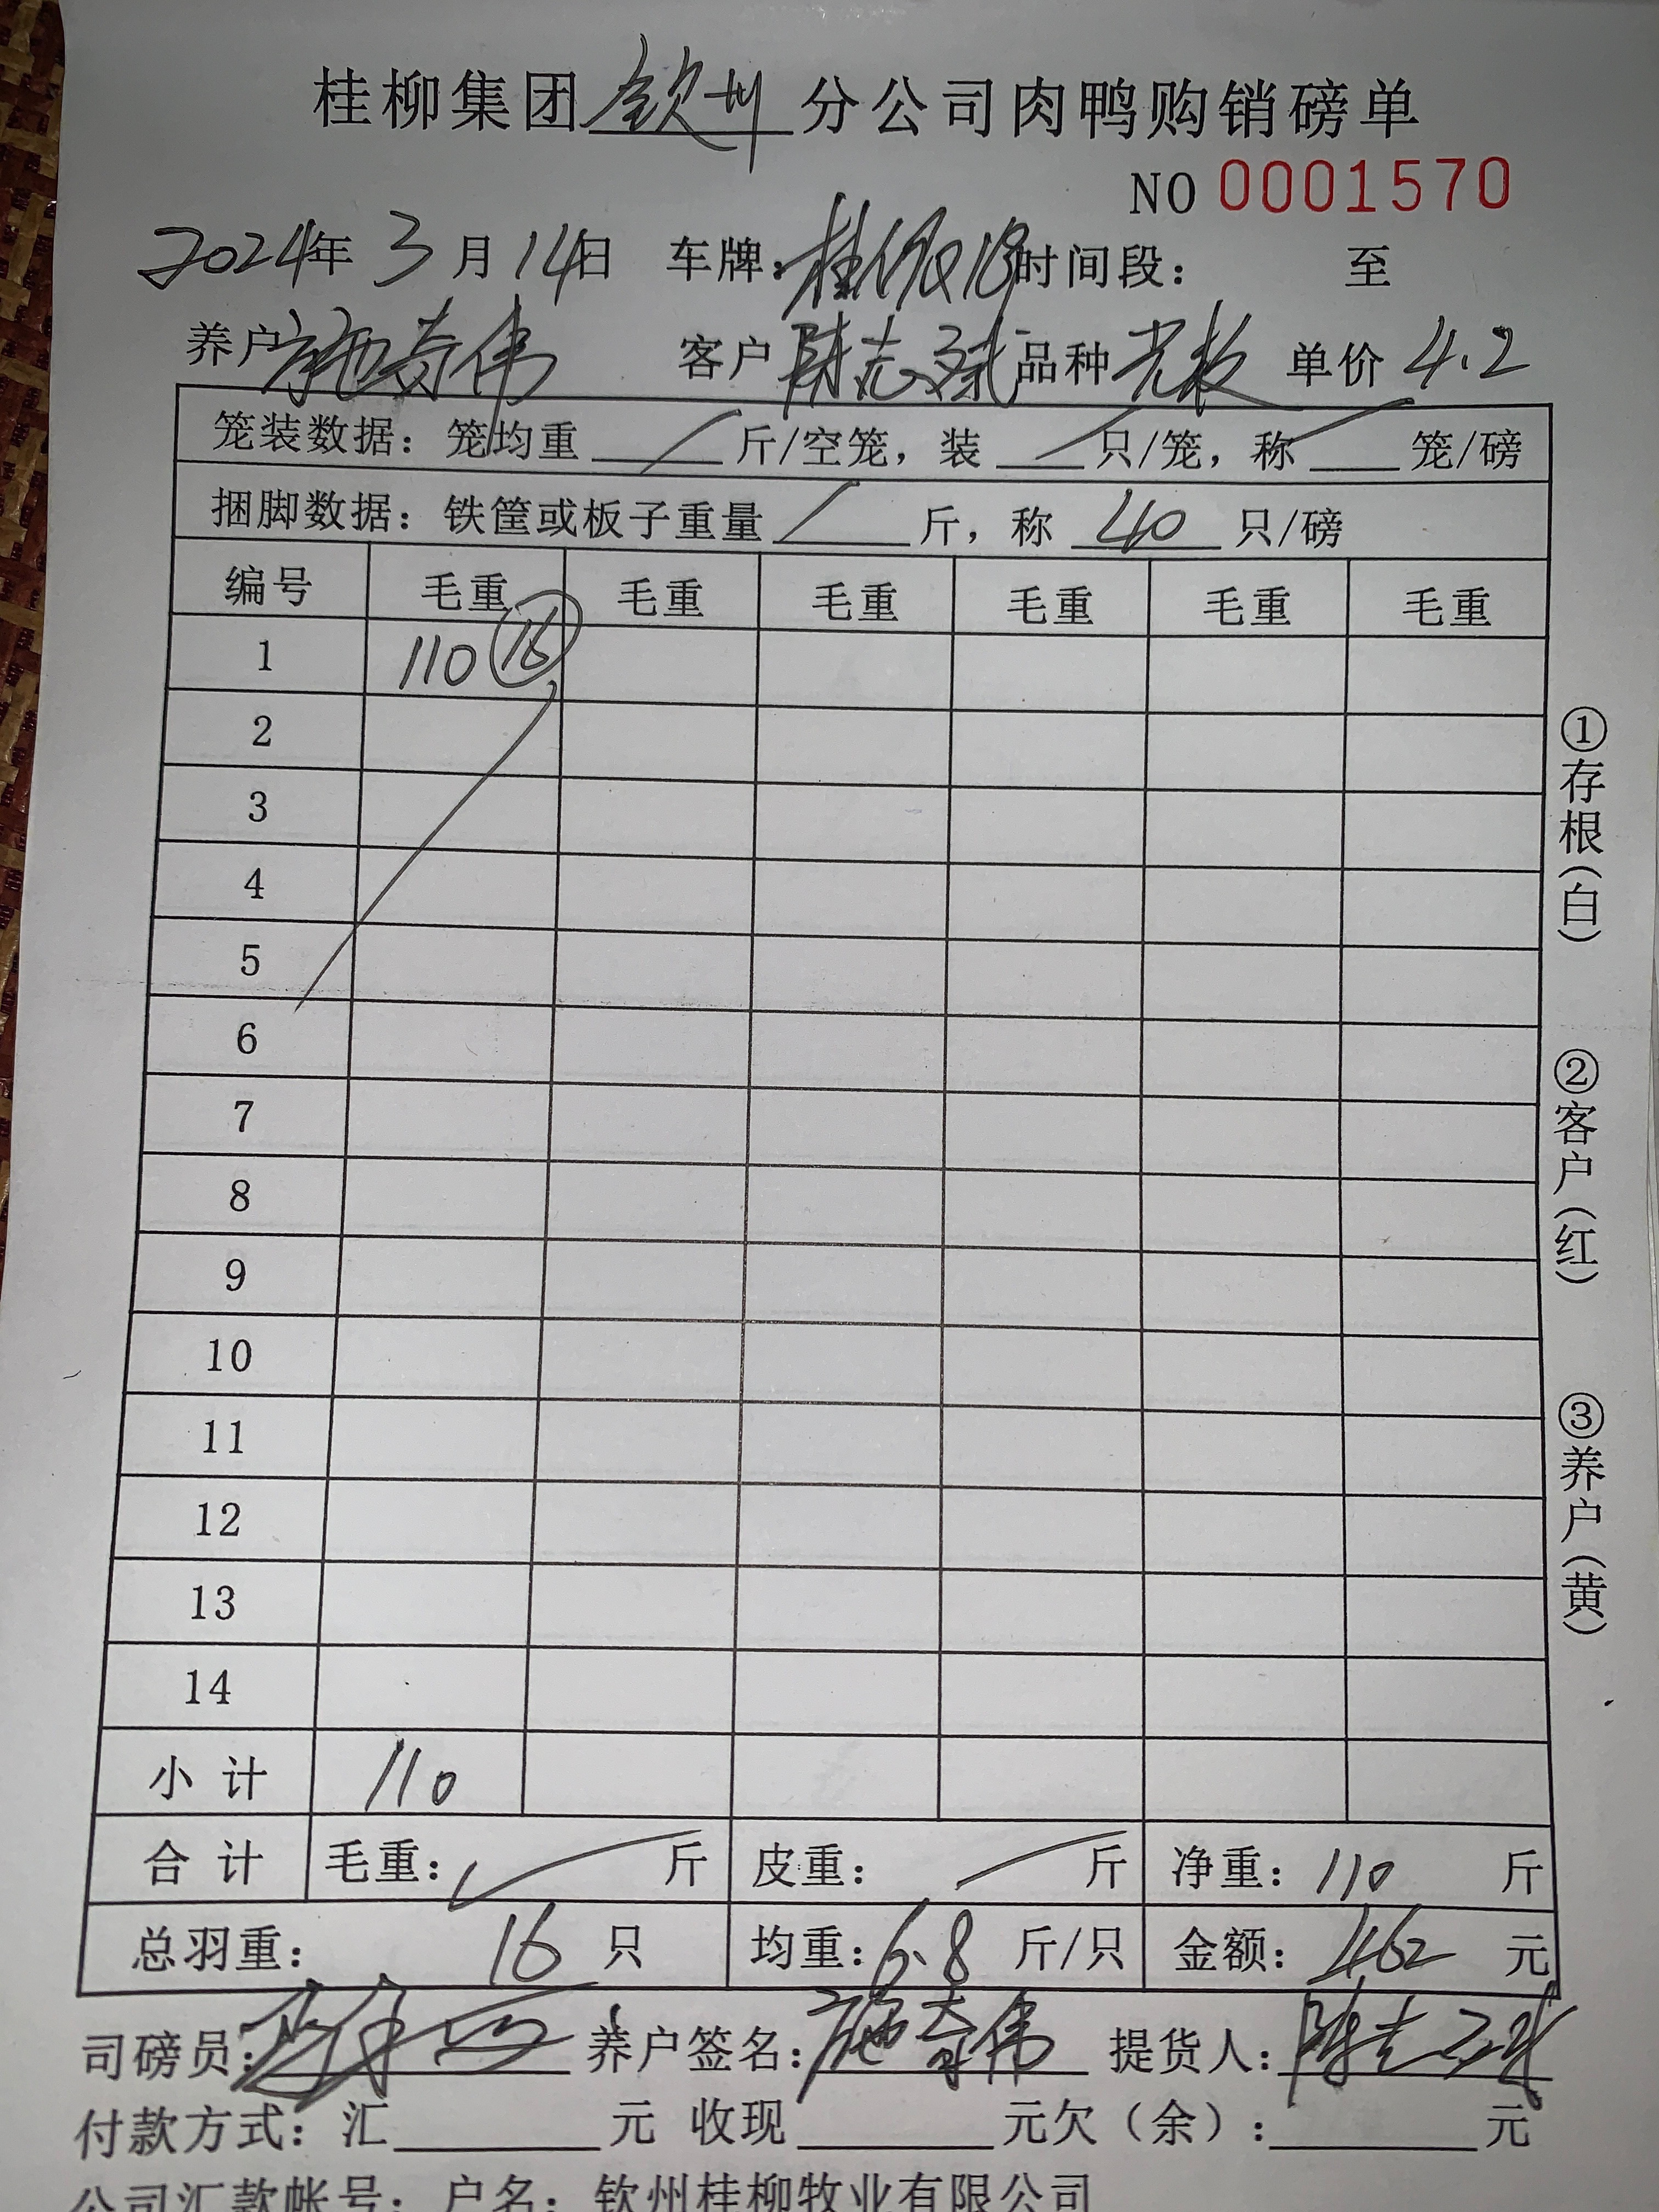 桂柳集团钦州分公司肉鸭购销磅单
NO 0001570
2024年 3月 14日 车牌: 桂 时间段: 至
养户 施奇伟 客户 陈志斌 品种 光板 单价 4.2
笼装数据: 笼均重 / 斤/空笼, 装 / 只/笼, 称 / 笼/磅
捆脚数据: 铁筐或板子重量 / 斤, 称 40 只/磅
编号 毛重 毛重 毛重 毛重 毛重 毛重
1 110 16
2
3
4
5
6
7
8
9
10
11
12
13
14
小计 110
合计 毛重: 斤 皮重: 斤 净重: 110 斤
总羽重: 16 只 均重: 6.8 斤/只 金额: 462 元
司磅员: 养户签名: 施奇伟 提货人: 陈志斌
付款方式: 汇 元 收现 元欠（余）: 元
公司汇款帐号: 户名: 钦州桂柳牧业有限公司
①存根（白）
②客户（红）
③养户（黄）